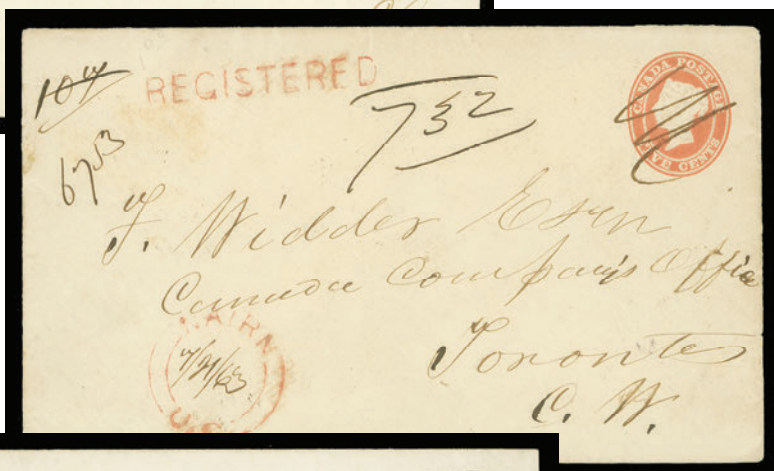 REGISTERED
CANADA POSTAGE
FIVE CENTS
732
6703
F. Widder Esqr
Canada Company's Office
Toronto
C. W.
NAIRN